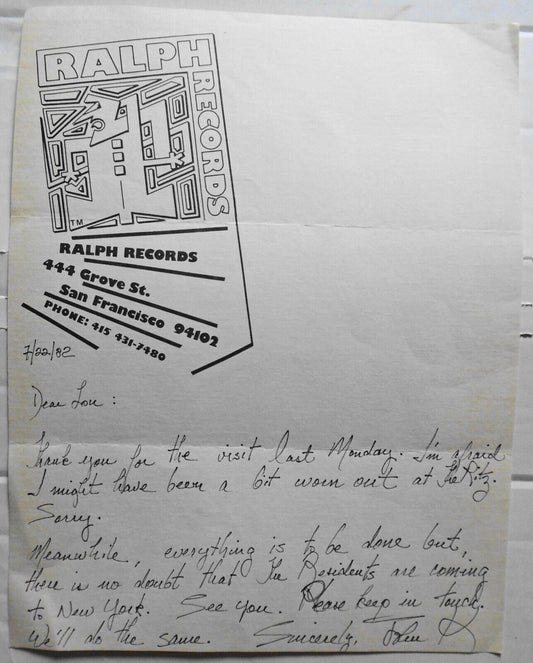 RALPH
RECORDS
TM
RALPH RECORDS
444 Grove St.
San Francisco 94102
PHONE: 415 431-7480
7/22/82
Dear Lou :
Thank you for the visit last Monday. I'm afraid
I might have been a bit worn out at The Ritz.
Sorry.
Meanwhile, everything is to be done but,
there is no doubt that The Residents are coming
to New York. See you. Please keep in touch.
We'll do the same. Sincerely,